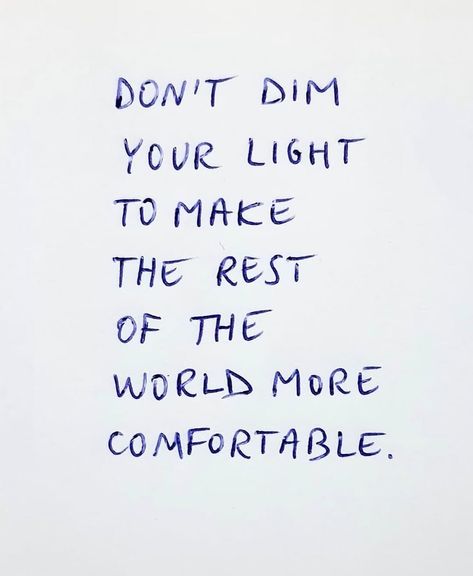 DON'T DIM
YOUR LIGHT
TO MAKE
THE REST
OF THE
WORLD MORE
COMFORTABLE.